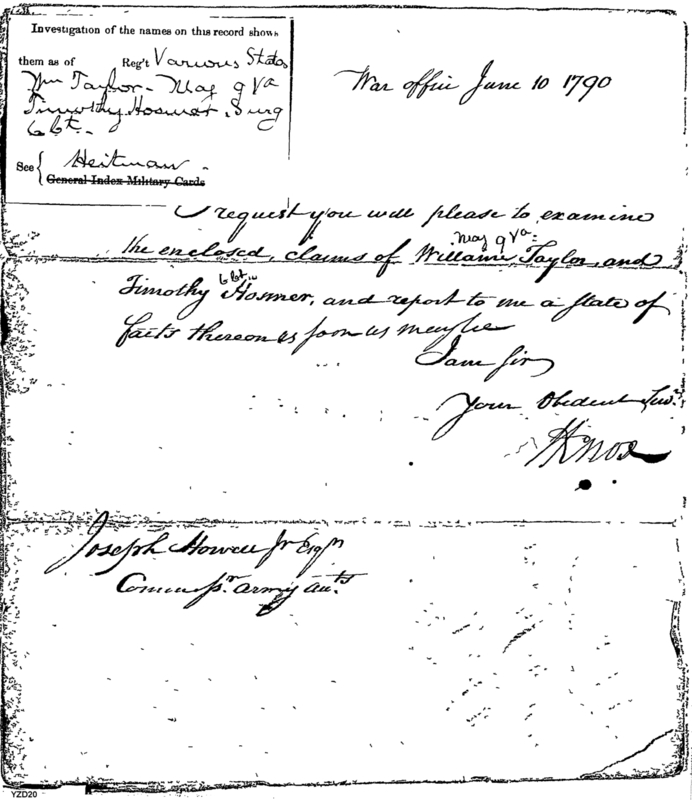 Investigation of the names on this record shows
them as of Reg't Various States
Wm Taylor - Maj 9 Va
Timothy Hosmer, Surg
6 Ct.
See { Heitman
General Index Military Cards
War office June 10 1790
I request you will please to examine
Maj 9 Va.
the enclosed, claims of William Taylor, and
6 Ct
Timothy Hosmer, and report to me a State of
facts thereon as soon as maybe
I am Sir
Your Obedient Serv.t
HKnox
Joseph Howell Jr Esqr
Commissr. army accts
YZD20